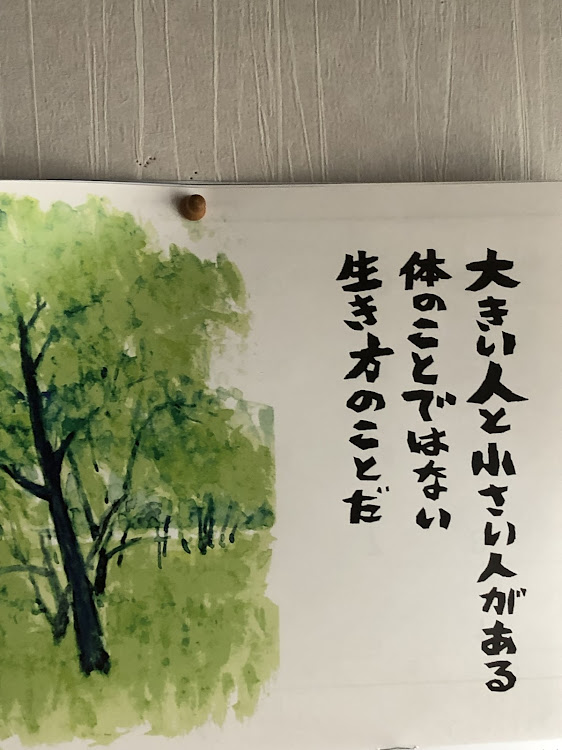 大きい人と小さい人がある
体のことではない
生き方のことだ